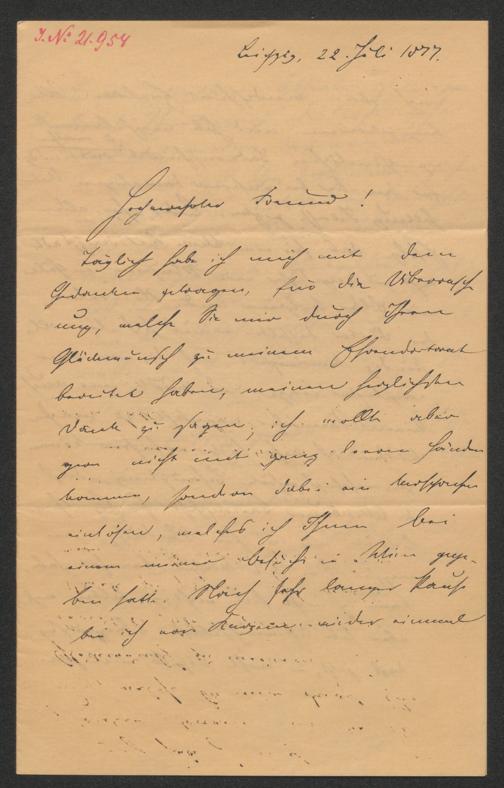 J. Nº 21.954
Leipzig, 22. Juli 1877.
Hochverehrter Freund!
Täglich habe ich mich mit dem
Gedanken getragen, für die Überrasch-
ung, welche Sie mir durch Ihren
Glückwunsch zu meinem Ehrendoctorat
bereitet haben, meinen herzlichsten
Dank zu sagen; ich wollte aber
gern nicht mit ganz leeren Händen
kommen, sondern dabei ein Versprechen
einlösen, welches ich Ihnen bei
einem meiner Besuche in Wien gege-
ben hatte. Nach sehr langer Pause
bin ich vor Kurzem wieder einmal